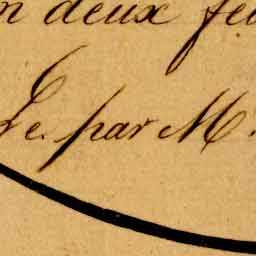 n deux feu
e. par M.